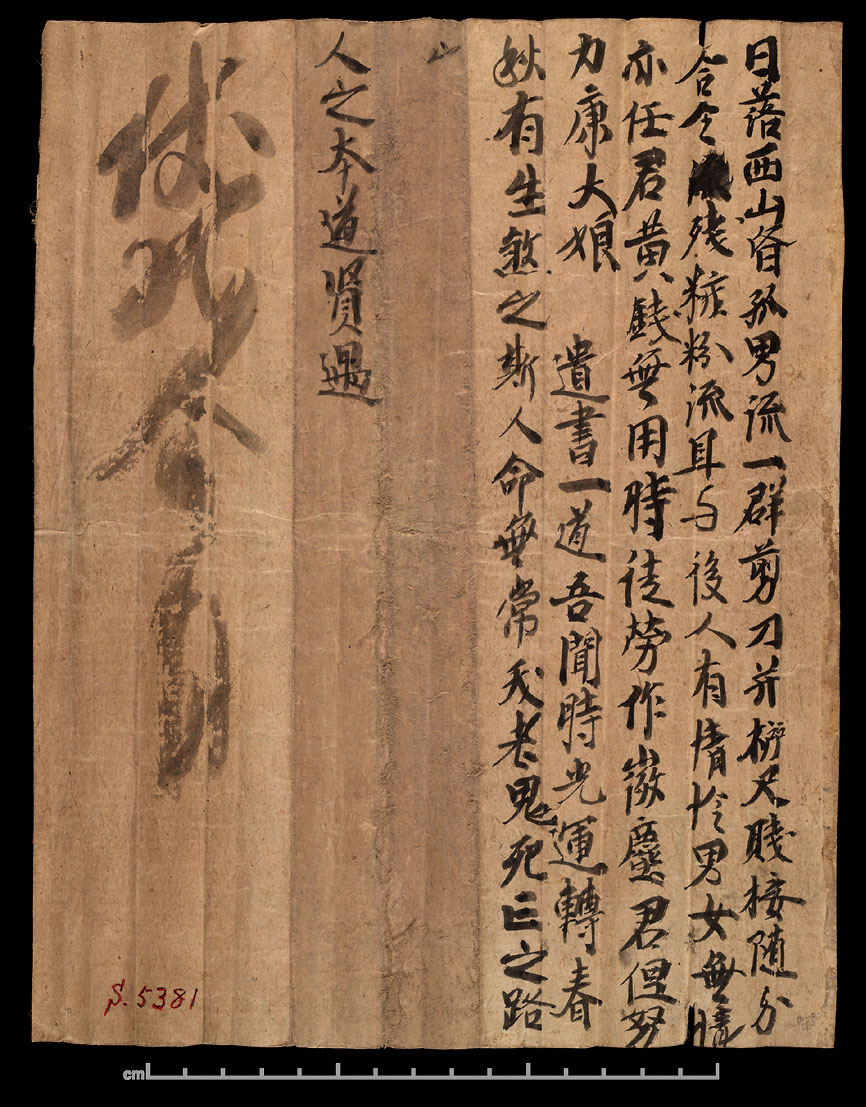 日落西山昏孤男流一群剪刀并柳尺賤接随分
合令残粧粉流且与後人有情怜男女無情
亦任君黄錢無用時徒勞作微塵君但努
力康大娘 遺書一道吾聞時光運轉春
秋有生煞之斯人命無常老鬼死亡之路
山
人之本道賢過
S.5381
cm